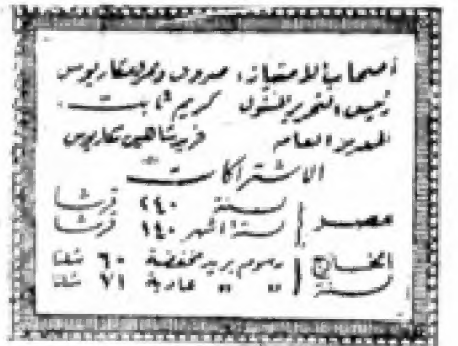 أصحاب الامتياز: صروف ونمر ومكاريوس
رئيس التحرير المسئول كريم ثابت
المدير العام فريد شاهين مكاريوس
الاشتراكات
مصر لسنة ٢٤٠ قرشا
لستة أشهر ١٤٠ قرشا
الخارج رسوم بريد مخفضة ٦٠ شلنا
لسنة " " عادية ٧١ شلنا